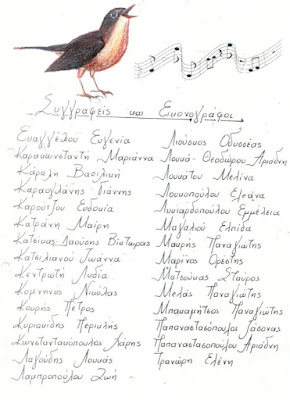 Συγγραφείς και Εικονογράφοι
Ευαγγέλου Ευγενία
Καρακωνσταντή Μαριάννα
Κάραλη Βασιλική
Καραογλάνης Γιάννης
Καρούτζου Ευδοκία
Κατράνη Μαίρη
Κατσίκας-Δαούσης Βίκτωρας
Κατσιλιανού Ιωάννα
Κεντρωτή Λυδία
Κομνηνός Νικόλας
Κουρής Πέτρος
Κυριακίδης Περικλής
Κωνσταντακόπουλος Χάρης
Λαγούδης Λουκάς
Λαμπροπούλου Ζωή
Λιούσιος Οδυσσέας
Λουκά-Θεοδώρου Αριάδνη
Λουκάτου Μελίνα
Λουκοπούλου Ελεάνα
Λυκιαρδοπούλου Εμμέλεια
Μαγαλιού Ελπίδα
Μαυρής Παναγιώτης
Μαρίνος Ορέστης
Ματσούκας Σταύρος
Μελάς Παναγιώτης
Μπακαμήτσος Παναγιώτης
Παπαναστασόπουλος Ιάσονας
Παπαναστασοπούλου Αριάδνη
Τρανώρη Ελένη